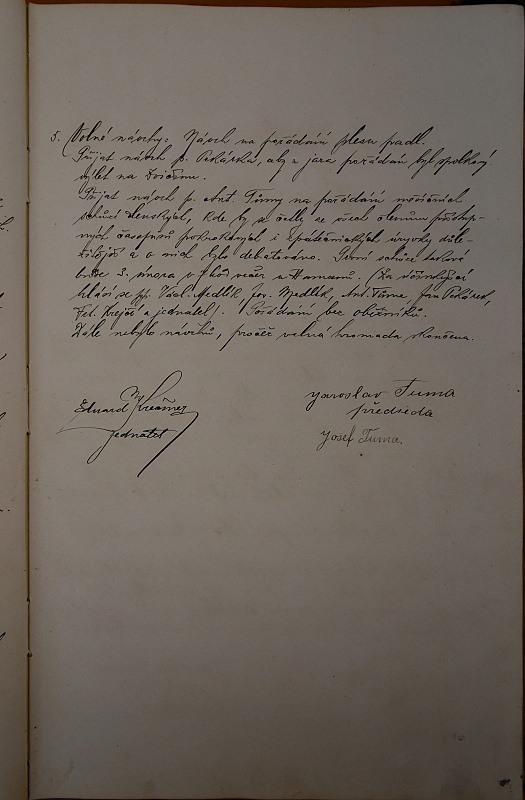 5. Volné návrhy: Návrh na pořádání plesu padl.
Přijat návrh p. Pekárka, aby z jara pořádán byl spolkový
výlet na Zvičinu.
Přijat návrh p. Ant. Tůmy na pořádání měsíčních
schůzí členských, kde by se četly ze všech členům přístup-
ných časopisů pokrokových i zpátečnických úryvky důle-
žitější a o nich bylo debatováno. První schůze taková
bude 3. února o hod. večer u Hamanů. (Za účinkující
hlásí se pp. Václ. Medlík, Jos. Medlík, Ant. Tůma, Jan Pekárek,
Fel. Krejčí a jednatel). Pořádání bez oběžníků.
Dále nebylo návrhů, pročež valná hromada skončena.
Eduard
jednatel
Jaroslav Tuma
předseda
Josef Tuma.